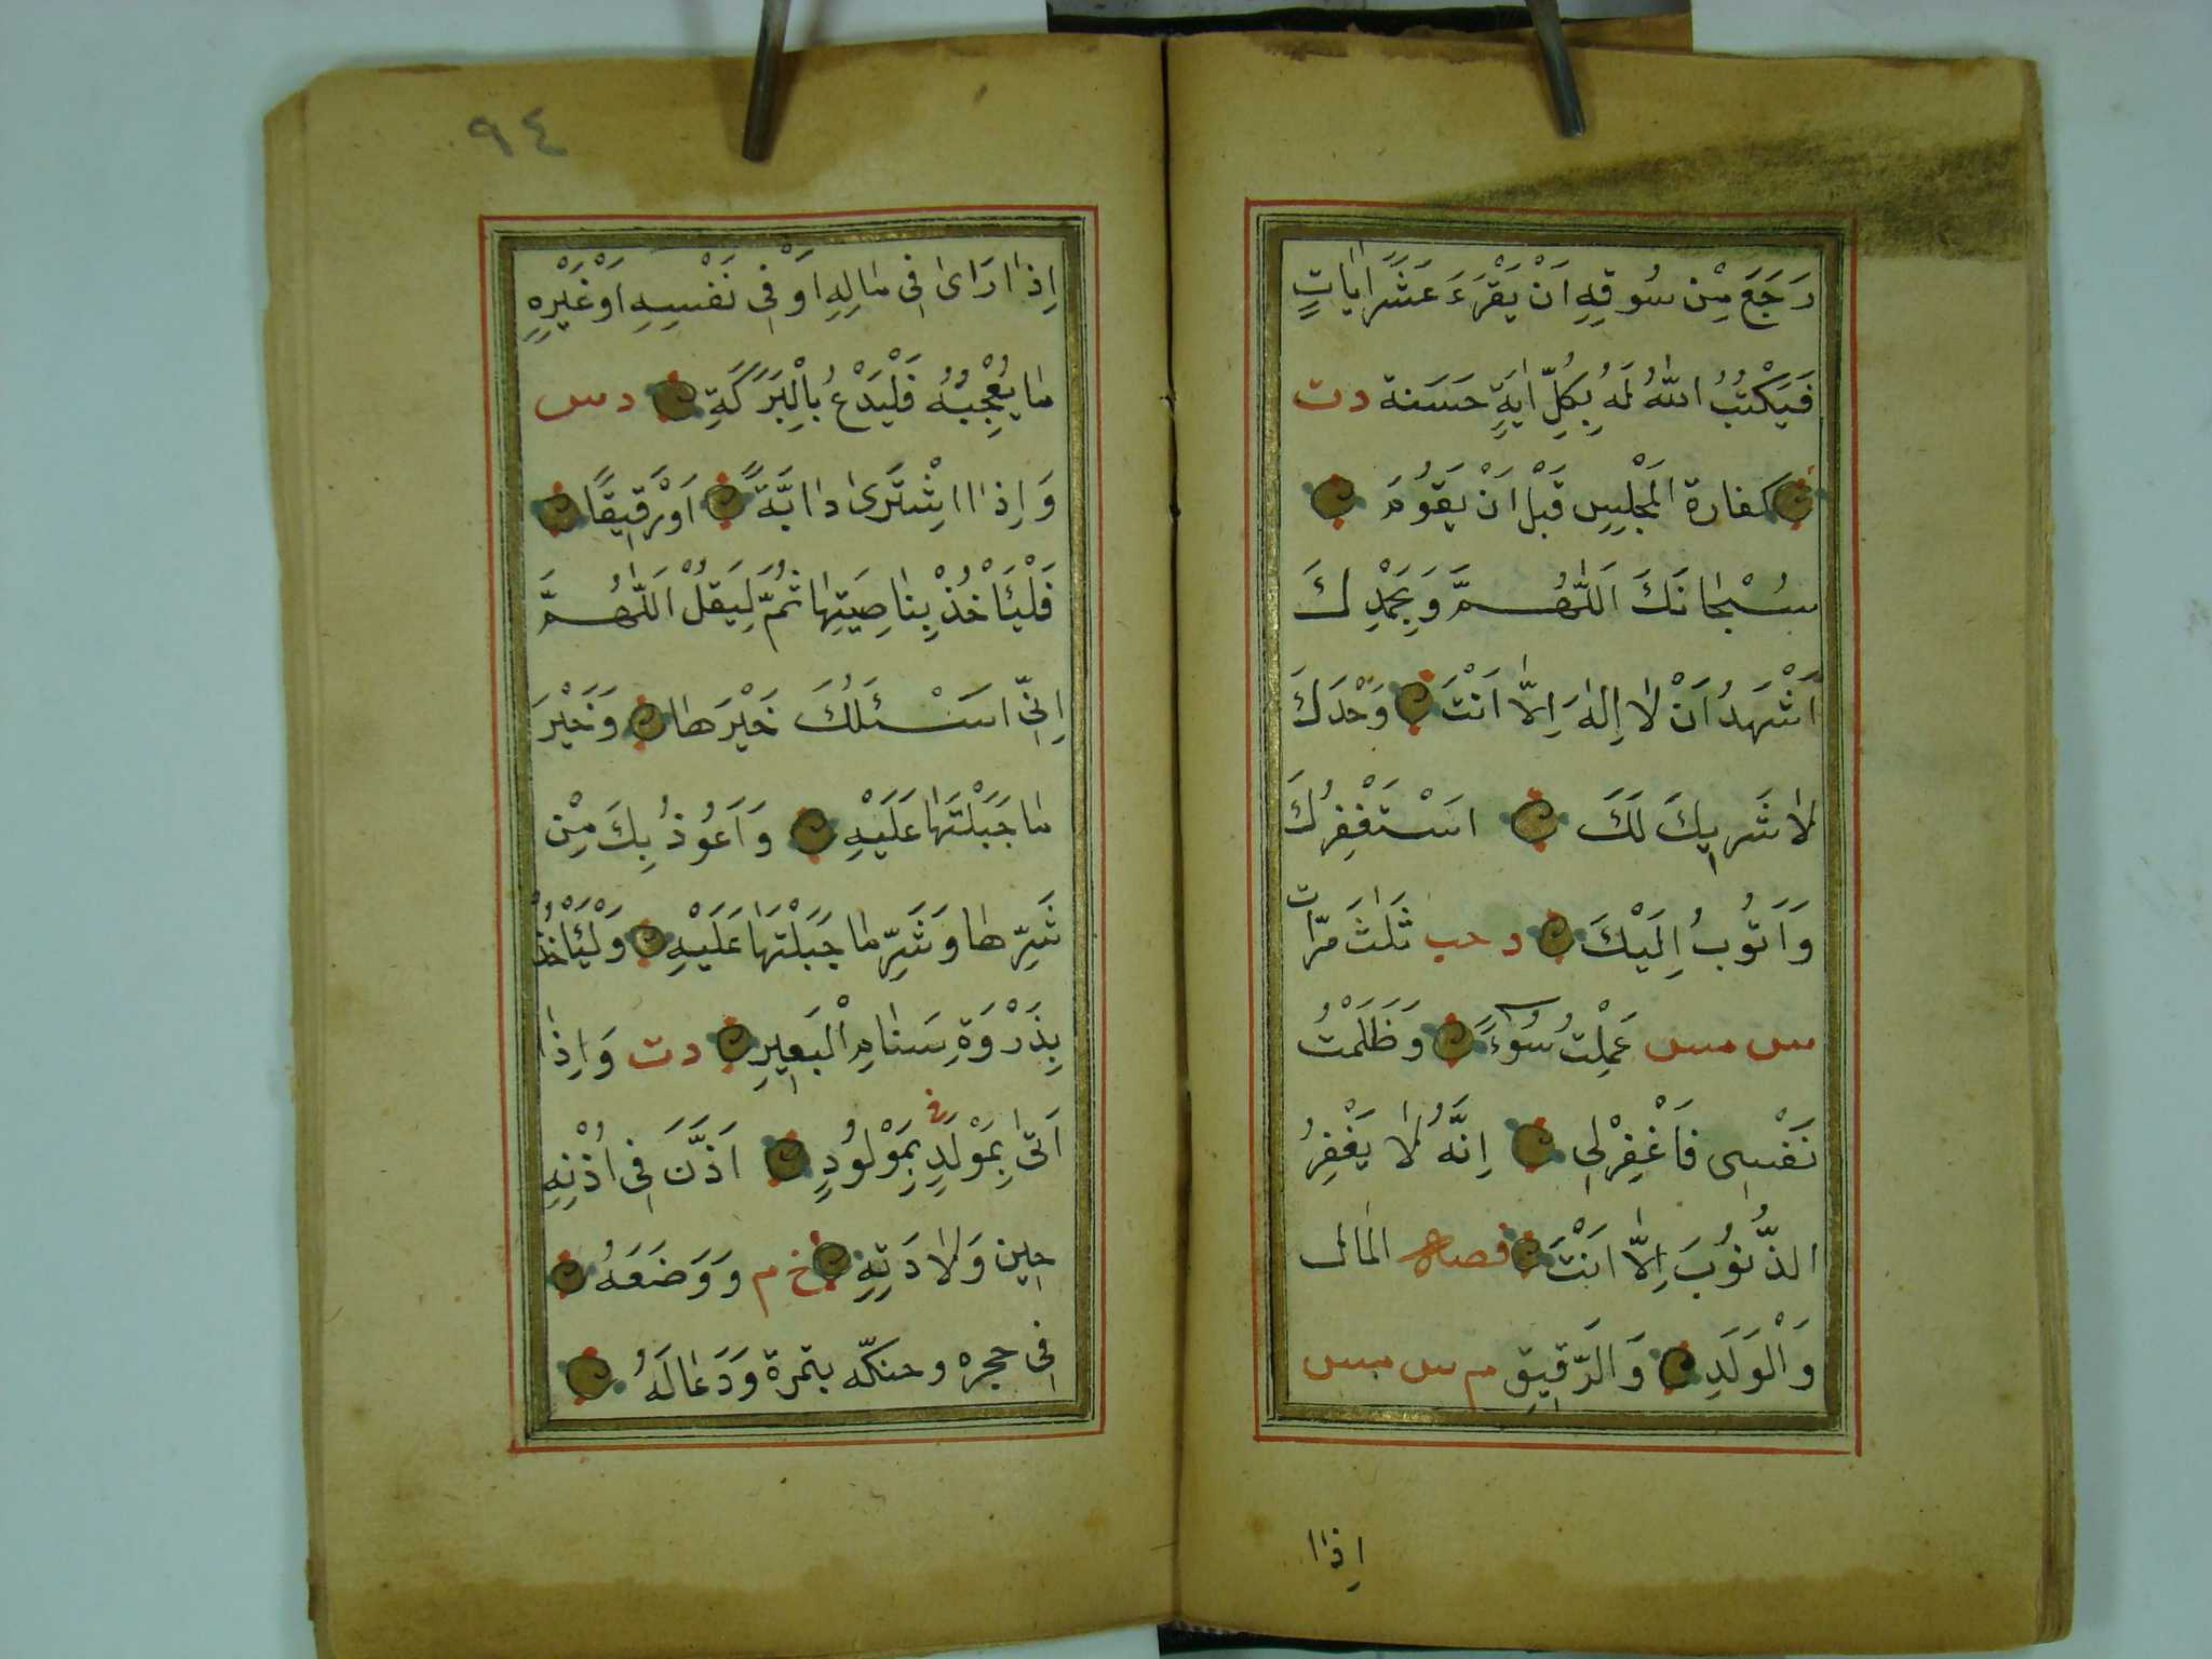 رَجَعَ مِنْ سُوقِهِ اَنْ يَقْرَءَ عَشَرَ اٰيَاتٍ
فَيَكْتُبُ اللّٰهُ لَهُ بِكُلِّ اٰيَةٍ حَسَنة دت
كفارة المَجْلِسِ قَبْلَ اَنْ يَقُومَ
سُبْحَانَكَ اَللّٰهُمَّ وَبِحَمْدِكَ
اَشْهَدُ اَنْ لَا اِلٰهَ اِلَّا اَنْتَ وَحْدَكَ
لَا شَرِيكَ لَكَ اَسْتَغْفِرُكَ
وَاَتُوبُ اِلَيْكَ د حب ثَلٰثَ مَرّات
س مس عَمِلْتُ سُوءً وَظَلَمْتُ
نَفْسِى فَاغْفِرْلِى اِنَّهُ لَا يَغْفِرُ
الذُّنُوبَ اِلَّا اَنْتَ المال
وَالْوَلَدِ وَالرَّقِيقِ م س مس
اِذا
٩٤
اِذَا رَاٰى فِى مَالِهِ اَوْ فِى نَفْسِهِ اَوْ غَيْرِهِ
مَا يُعْجِبُهُ فَلْيَدْعُ بِالْبَرَكَةِ دس
وَاِذَا اشْتَرٰى دَابَّةً اَوْ رَقِيقًا
فَلْيَأْخُذْ بِنَاصِيَتِهَا ثُمَّ لِيَقُلْ اَللّٰهُمَّ
اِنِّى اَسْئَلُكَ خَيْرَهَا وَخَيْرَ
مَا جَبَلْتَهَا عَلَيْهِ وَاَعُوذُ بِكَ مِنْ
شَرِّهَا وَشَرِّ مَا جَبَلْتَهَا عَلَيْهِ وَلْيَأْخُذْ
بِذَرْوَةِ سَنَامِ الْبَعِيرِ دت وَاِذَا
اَتٰى بِمَوْلِدٍ بِمَوْلُودٍ اَذَّنَ فِى اُذُنِهِ
حِين وَلَادَتِهِ خ م وَوَضَعَهُ
فِى حجره وحنكّه بتمرة وَدَعَا لَهُ